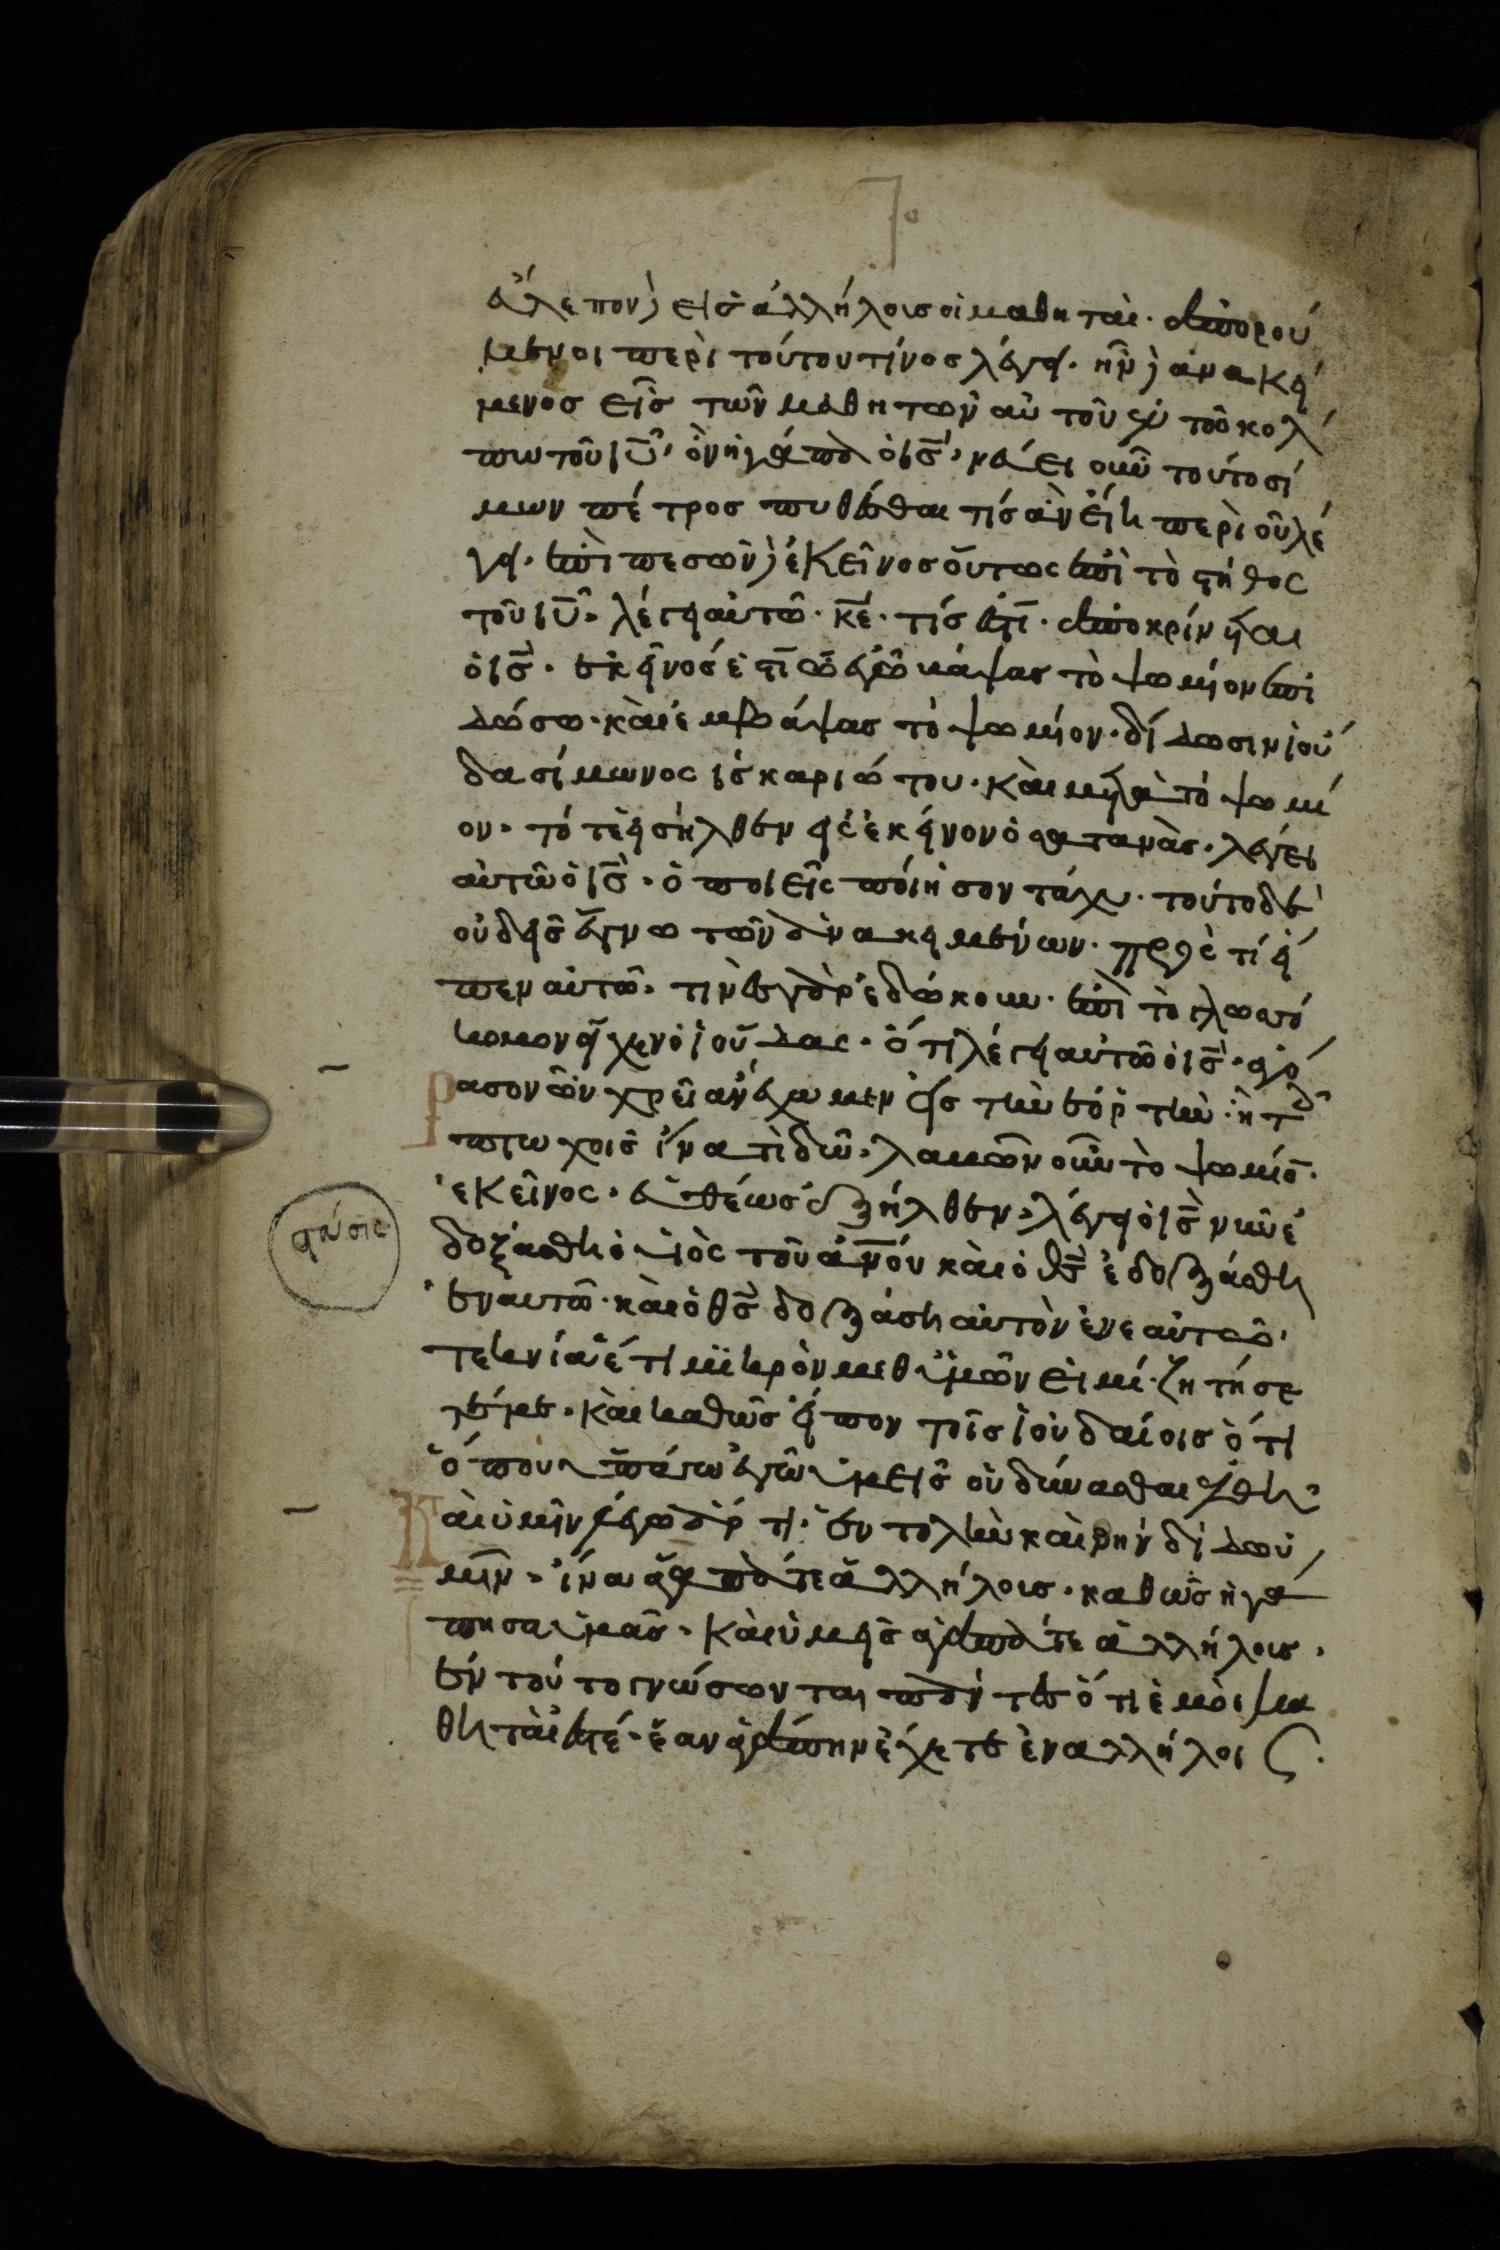 ἔβλεπον εἰς ἀλλήλοις οἱ μαθηταὶ· ἀπορού
μενοι περὶ τούτου τίνος λέγει· ἦν ἀνακεί
μενος εἷς τῶν μαθητῶν αὐτοῦ ἐν τῶ κόλ
πω τοῦ ιῦ· ὃν ἠγάπα ὁ ις· νεύει οὖν τούτο σί
μων πέτρος πυθέσθαι τίς ἂν εἴη περὶ οὗ λέ
γει· ἐπιπεσῶν ἐκεῖνος οὕτως ἐπὶ τὸ στήθος
τοῦ ιῦ· λέγει αὐτῶ· κε· τίς ἐστι· ἀποκρίνεται
ὁ ις· ἐκεῖνός ἐστι ὦ ἐγὼ βάψας τὸ ψωμίον ἐπι
δώσω· καὶ ἐμβάψας τὸ ψωμίον· δίδωσιν ἰού
δα σίμωνος ἰσκαριώτου· καὶ μετὰ τὸ ψωμί
ον· τότε εἰσήλθεν εἰς ἐκείνον ὁ σατανὰς· λέγει
αὐτῶ ὁ ις· ὃ ποιεῖς ποίησον τάχι· τούτο δὲ
οὐδεὶς ἔγνω τῶν ἀνακειμένων· πρὸς τί εἶ
πεν αὐτῶ· τινὲς γὰρ ἐδώκουν· ἐπὶ τὸ γλωσσό
κομον εἶχεν ὁ ἰούδας· ὅτι λέγει αὐτῶ ὁ ις· ἀγό
ρασον ὧν χρείαν ἔχωμεν εἰς τὴν ἑορτὴν· ἢ τοῖς
πτωχοῖς ἵνα τὶ δῶ· λαβὼν οὖν τὸ ψωμίον·
ἐκεῖνος· εὐθέως ἐξήλθεν· λέγει ὁ ις νῦν ἐ
δοξάσθη ὁ υἱὸς τοῦ ανου καὶ ὁ θς ἐδοξάσθη
ἐν αυτῶ· καὶ ὁ θς δοξάση αὐτὸν ἐν ἑαὐτῶ·
τεκνία ἔτι μικρὸν μεθ ὑμῶν εἰμί· ζητήσε
τέ με· καὶ καθῶς εἶπον τοῖς ἰουδαίοις ὅτι
ὅπου ὑπάγω ἐγὼ ὑμεῖς οὐ δύνασθαι ἐλθεῖν·
Καὶ ὑμῖν λέγω ἄρτι· ἐντολὴν καινὴν δίδω ὑ
μῖν· ἵνα ἀγαπάτε ἀλλήλοις· καθῶς ἠγά
πησα ὑμᾶς· καὶ ὑμεῖς ἀγαπάτε ἀλλήλοις·
ἐν τούτο γνώσονται πάντες ὅτι ἐμοὶ μα
θηταὶ ἐστέ· ἐὰν ἀγάπην ἔχετε ἐν ἀλλήλοις·